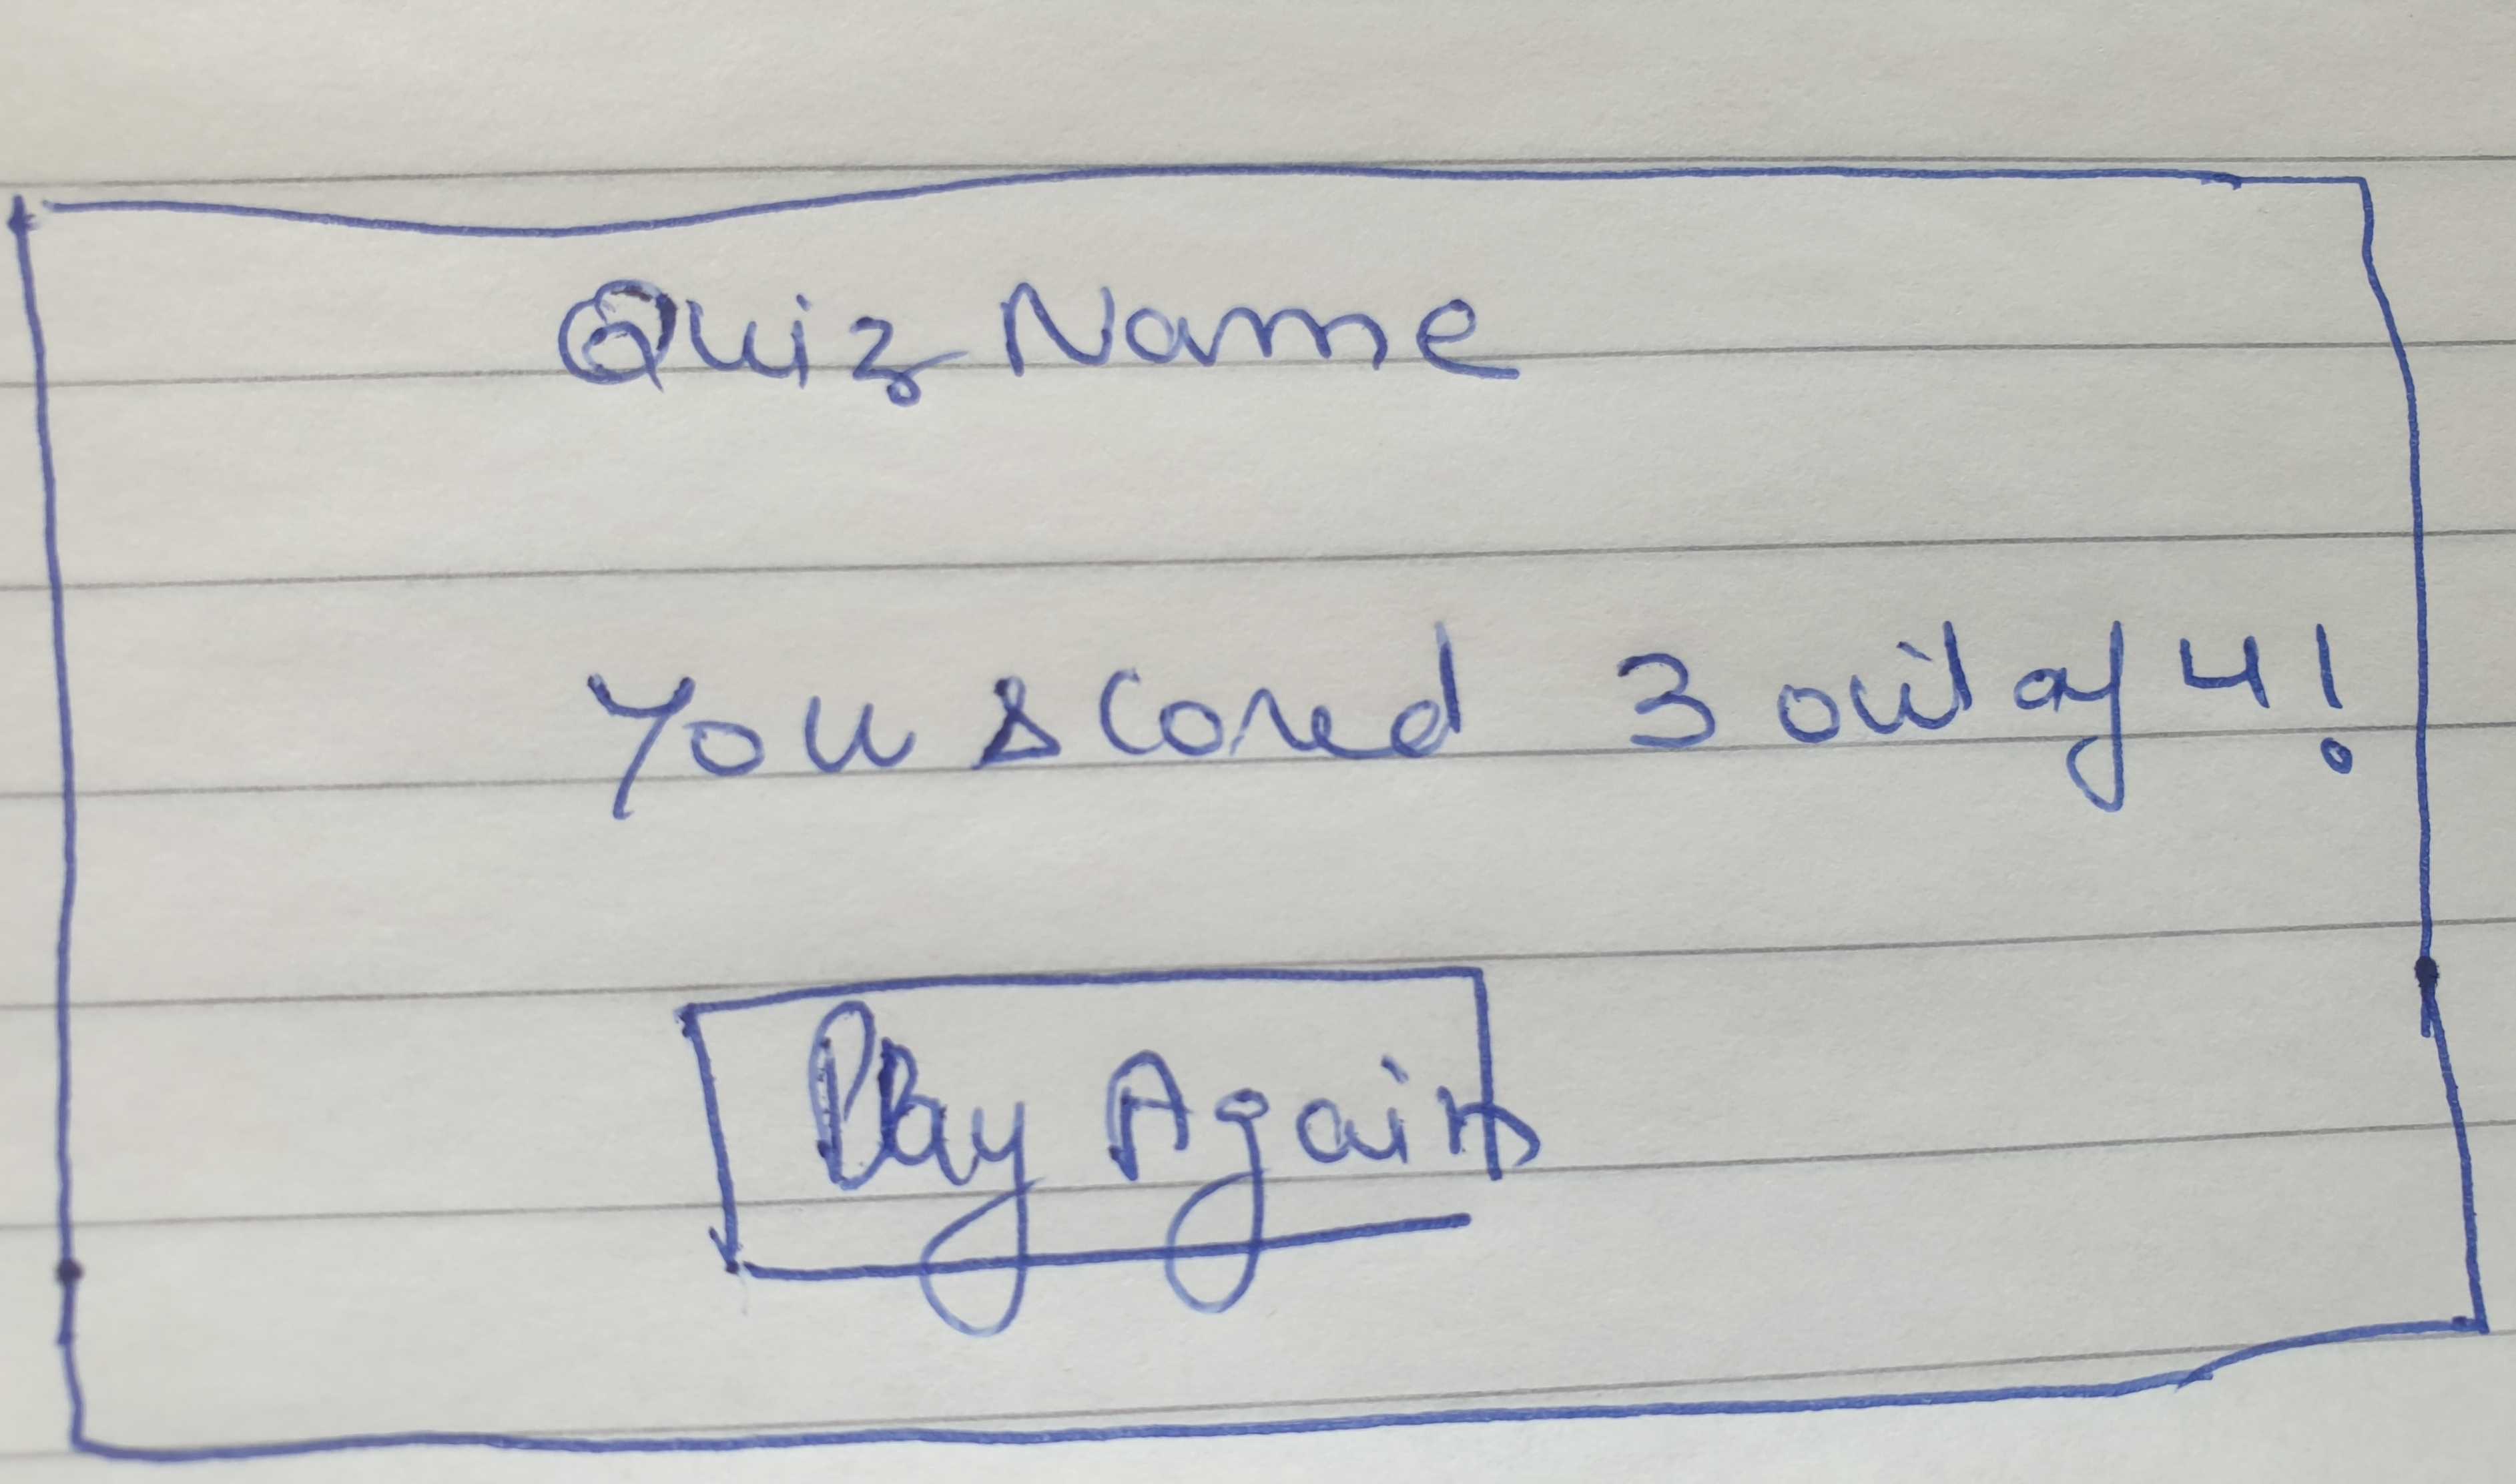 Quiz Name
You scored 3 out of 4!
Play Again